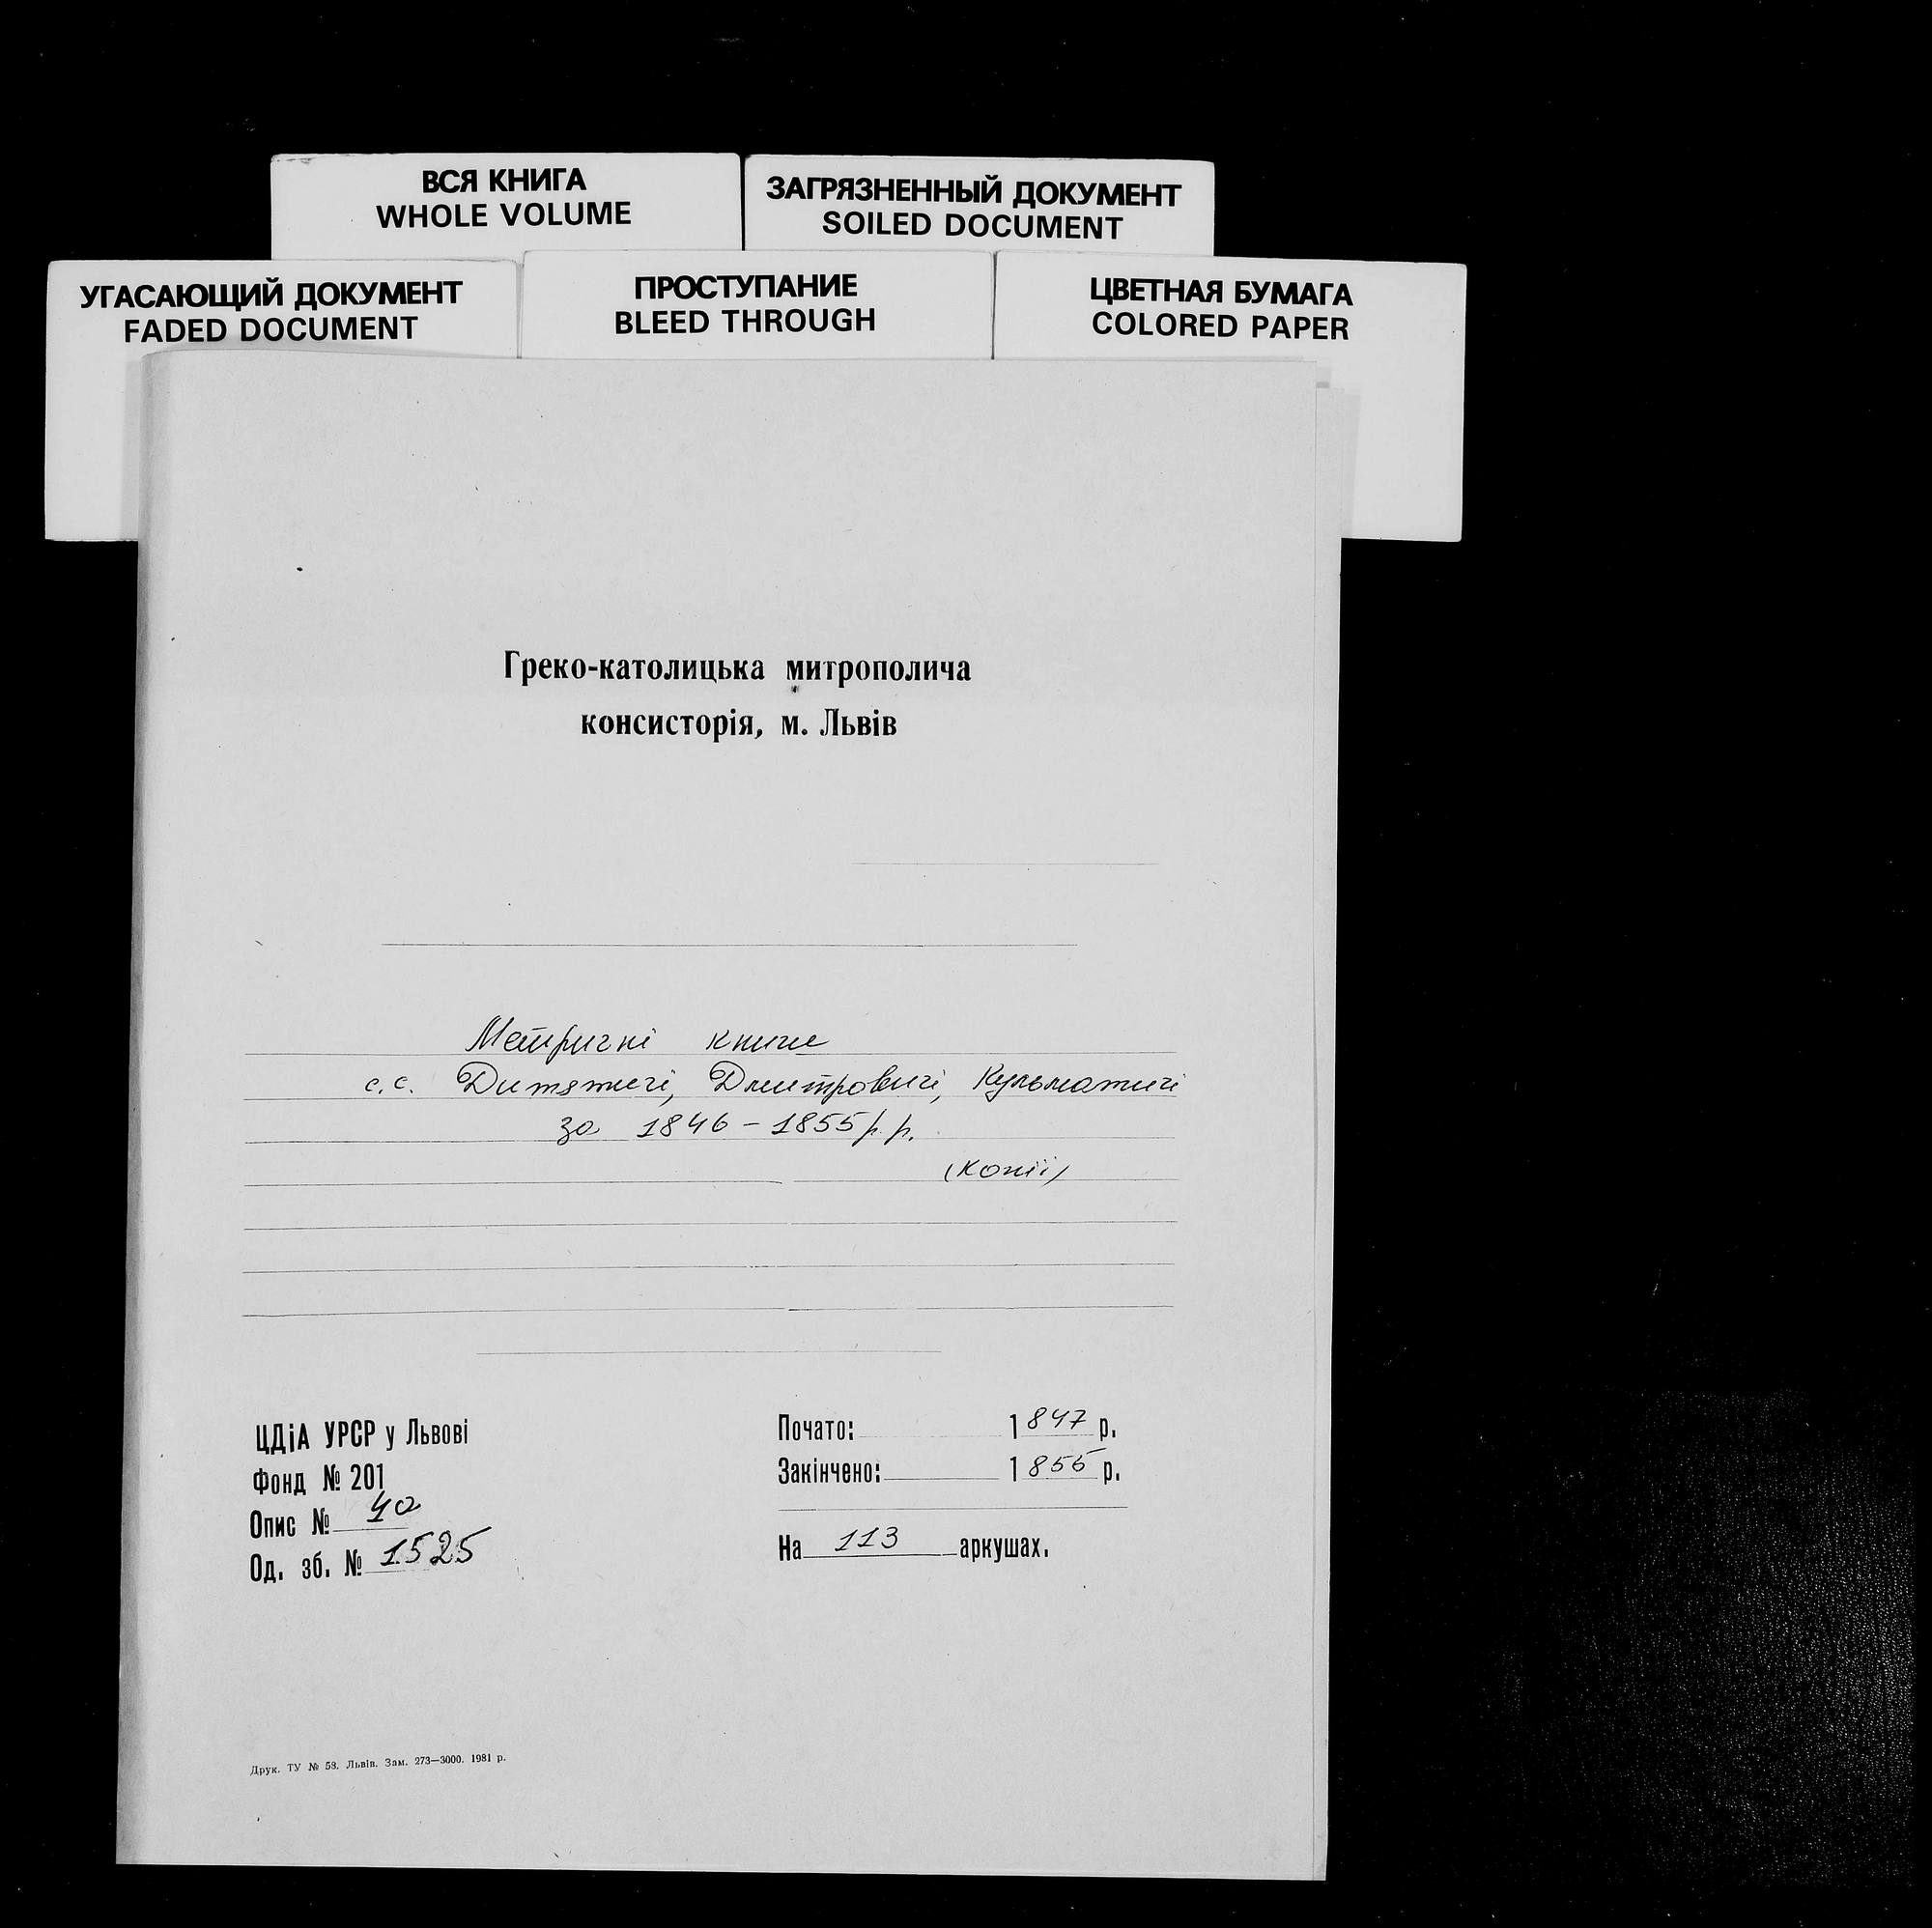 ВСЯ КНИГА
WHOLE VOLUME
ЗАГРЯЗНЕННЫЙ ДОКУМЕНТ
SOILED DOCUMENT
УГАСАЮЩИЙ ДОКУМЕНТ
FADED DOCUMENT
ПРОСТУПАНИЕ
BLEED THROUGH
ЦВЕТНАЯ БУМАГА
COLORED PAPER
Греко-католицька митрополича
консисторія, м. Львів
Метричні книги
с.с. Дитятичі, Дмитровичі, Кульматичі
за 1846 - 1855 р.р.
(копії)
ЦДіА УРСР у Львові
Фонд № 201
Опис № 4а
Од. зб. № 1525
Почато: 1847 р.
Закінчено: 1855 р.
На 113 аркушах.
Друк. ТУ № 58. Львів. Зам. 273—3000. 1981 р.